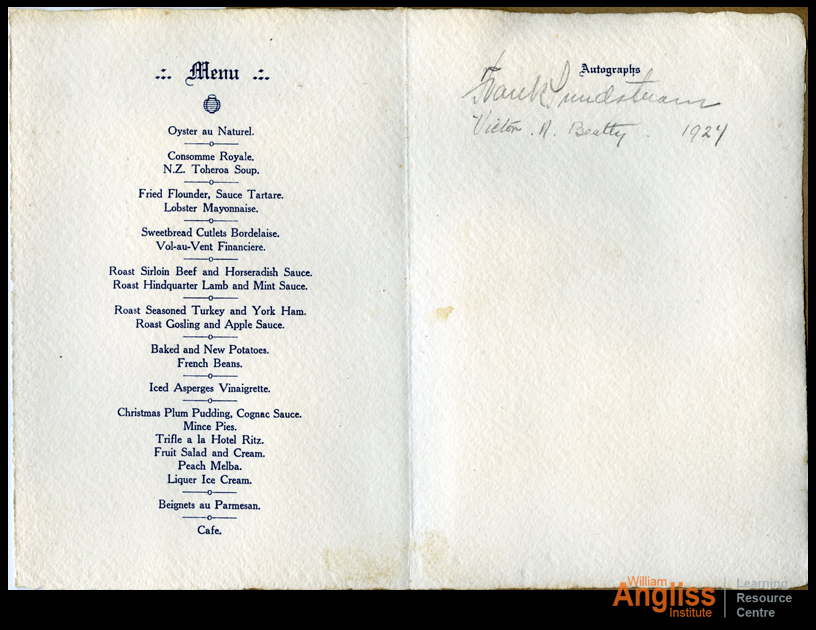 .:. Menu .:.
Oyster au Naturel.
Consomme Royale.
N.Z. Toheroa Soup.
Fried Flounder, Sauce Tartare.
Lobster Mayonnaise.
Sweetbread Cutlets Bordelaise.
Vol-au-Vent Financiere.
Roast Sirloin Beef and Horseradish Sauce.
Roast Hindquarter Lamb and Mint Sauce.
Roast Seasoned Turkey and York Ham.
Roast Gosling and Apple Sauce.
Baked and New Potatoes.
French Beans.
Iced Asperges Vinaigrette.
Christmas Plum Pudding, Cognac Sauce.
Mince Pies.
Trifle a la Hotel Ritz.
Fruit Salad and Cream.
Peach Melba.
Liquer Ice Cream.
Beignets au Parmesan.
Cafe.
Autographs
Frank Lundstream
Victor. R. Beatty. 1924
William
Angliss
Institute
Learning
Resource
Centre